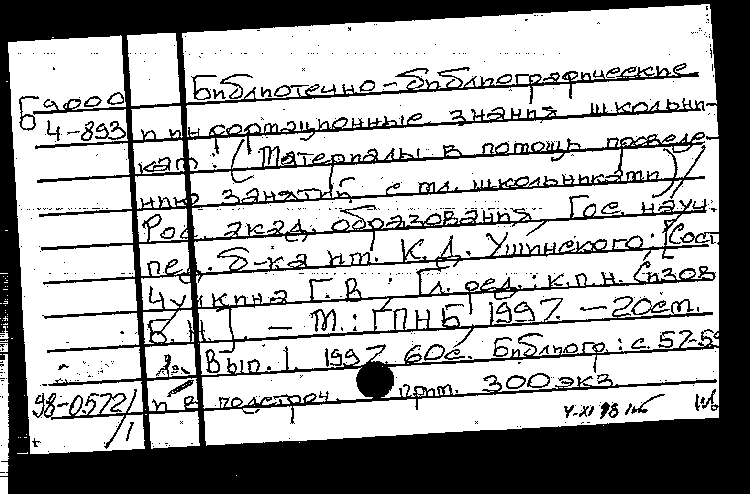 Библиотечно-библиографические
Б 9000
4-893 и информационные знания школьни-
кам : (Материалы в помощь проведе-
нию занятий с мл. школьниками) /
Рос. акад. образования, Гос. науч.
пед. б-ка им. К.Д. Ушинского; [Сост.
Чулкина Г.В. Гл. ред.: к.п.н. Сизов
Б.Н.]. — М.: ГПНБ, 1997. — 20см.
Вып. 1. 1997. 60с. Библиогр.: с. 57-59
98-05721 и в подстроч. прим. 300 экз.
/1 V-XI 98